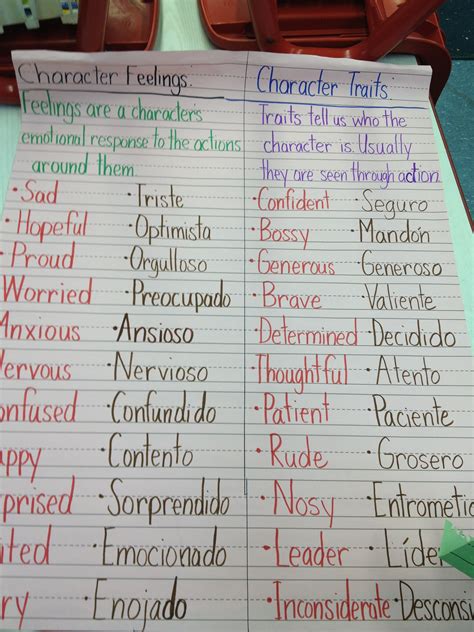 Character Feelings.
Feelings are a characters
emotional response to the actions
around them.
• Sad • Triste
• Hopeful • Optimista
• Proud • Orgulloso
Worried • Preocupado
Anxious • Ansioso
ervous • Nervioso
onfused • Confundido
appy • Contento
prised • Sorprendido
ited • Emocionado
ry • Enojado
Character Traits.
Traits tell us who the
character is. Usually
they are seen through action.
• Confident • Seguro
• Bossy • Mandón
• Generous • Generoso
• Brave • Valiente
• Determined • Decidido
• Thoughtful • Atento
• Patient • Paciente
• Rude • Grosero
• Nosy • Entrometic
• Leader • Líder
• Inconsiderate • Desconsi